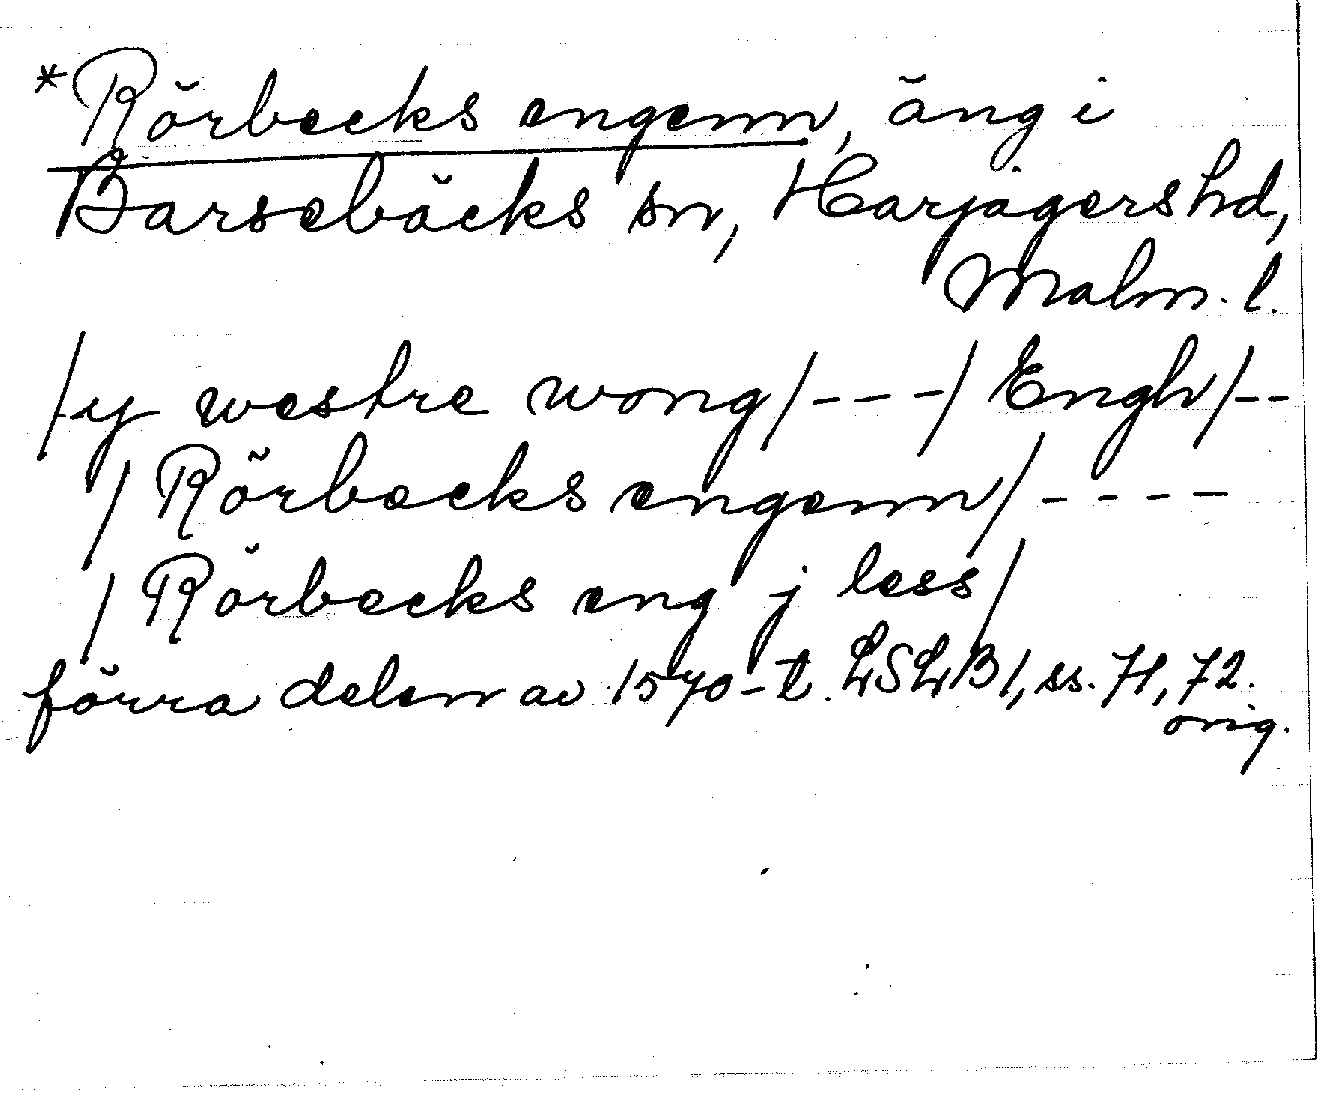 *Rörbecks engenn, äng i
Barsebäcks sn, Harjagers hd,
Malm. l.
/y westre wong/---/Engh/--
/Rörbecks engenn/----
/Rörbecks eng j less/
förra delen av 1570-t. LSLB1, ss. 71, 72.
orig.